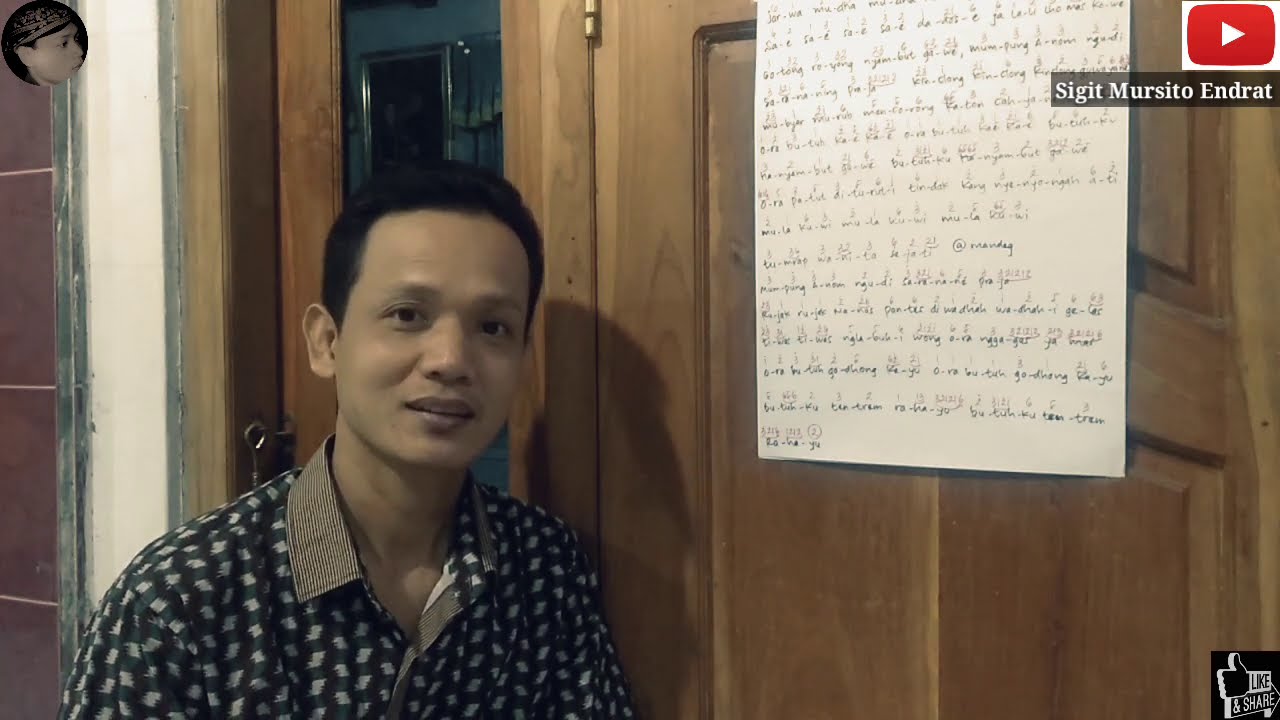 Sigit Mursito Endrat
Jar-wa mu-dha mu-dha
sa-e sa-e sa-e sa-e da-dos-e ja la-li lho mas ko-we
Go-tong ro-yong nyam-but ga-we, mum-pung A-nom ngu-di
sa-ra-na-ning pra-ja kin-clong kin-clong kinclong
mu-byar mu-rub men-co-rong ka-ton cah-ya-
o-ra bu-tuh ka-e ka-e o-ra bu-tuh kae ka-e bu-tuh-ku
ha-nyam-but ga-we bu-tuh-ku ha-nyam-but ga-we
o-ra pa-tut di-tu-rut-i tin-dak kang nye-nyo-ngah a-ti
mu-la ku-wi mu-la ku-wi mu-la ku-wi
tu-mrap wa-ni-ta se-ja-ti @ mandeg
mum-pung A-nom ngu-di sa-ra-na-ne pra-ja
Ru-jak ru-jak na-nas pon-tas di wadhah wa-dhah-i ge-las
ti-was ti-was ngla-buh-i wong o-ra ngga-gas ja mas
o-ra bu-tuh go-dhong ka-yu o-ra bu-tuh go-dhong ka-yu
bu-tuh-ku ten-trem ra-ha-yu bu-tuh-ku ten-trem
Ra-ha-yu
LIKE
& SHARE